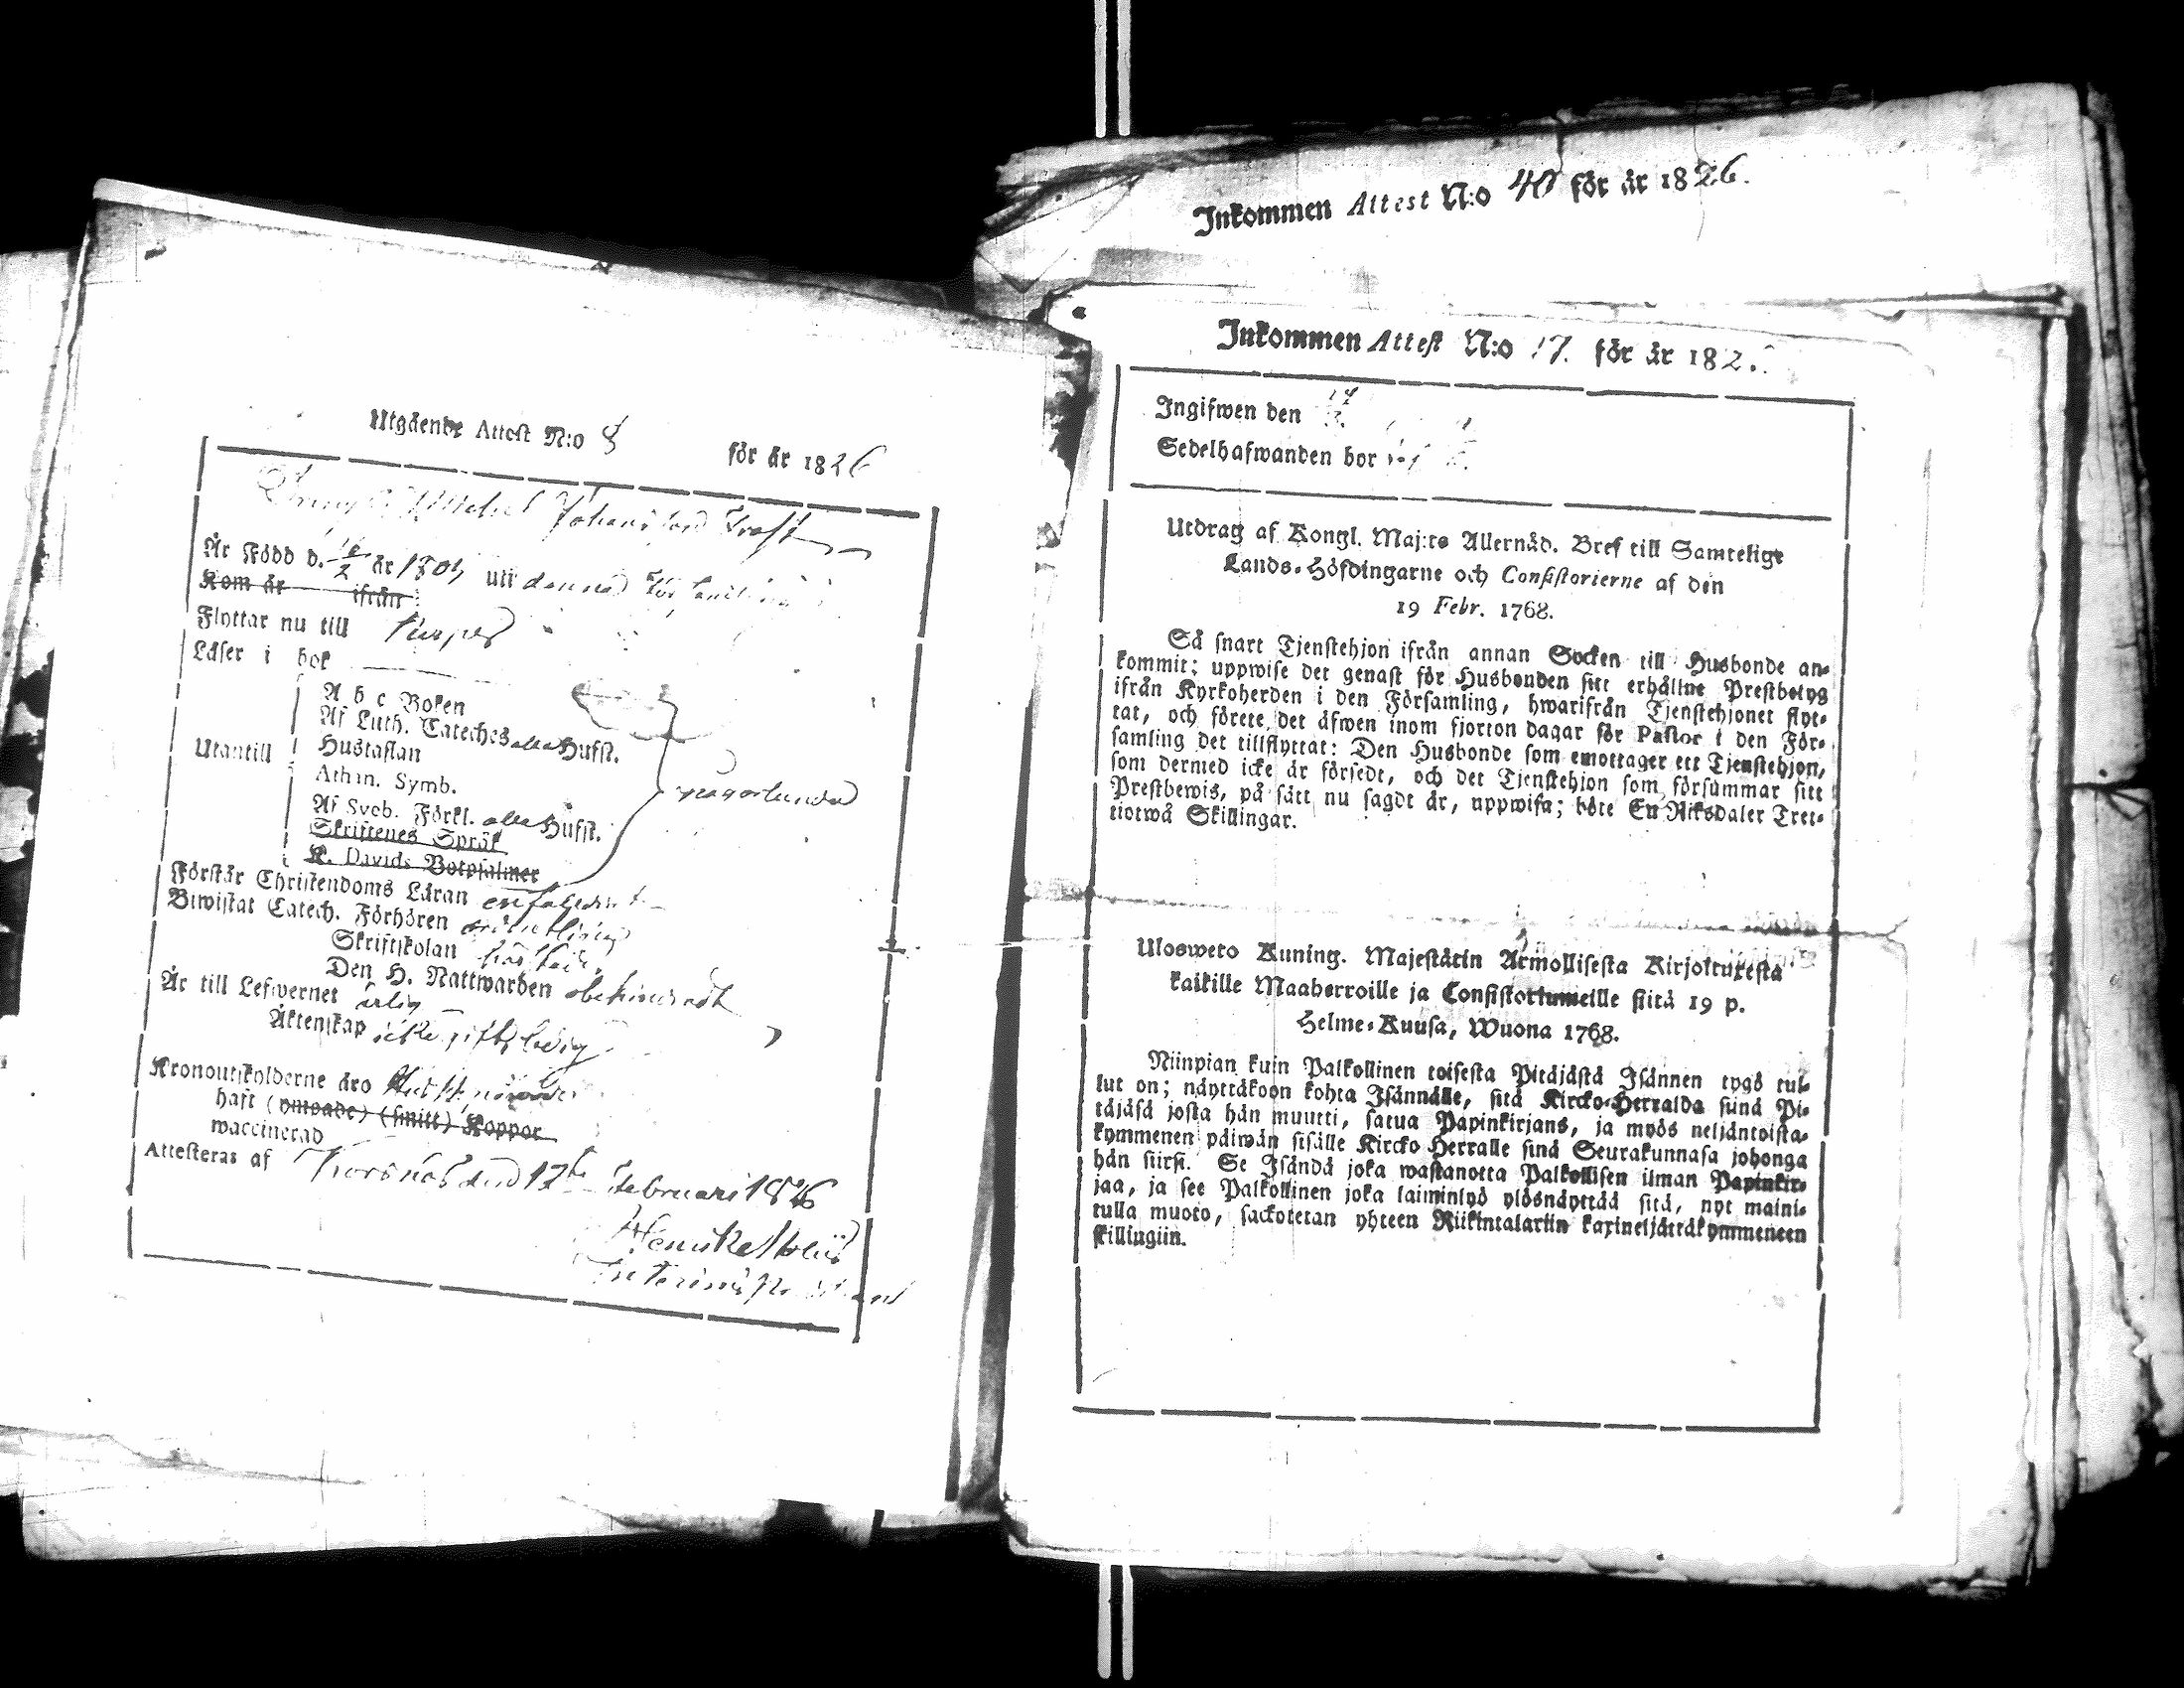 Utgående Attest N:o 8 för år 1826
Michel Johansson
Är Född d. är uti denna
Kom år ifrån
Flyttar nu till
Läser i bok
Utantill
A b c Boken
Af Luth. Cateches alla Hufst.
Hustaflan
Athan. Symb.
Af Sveb. Förkl. alla Hufst.
Skriftenes Språk
K. Davids Botpsalmer
någorlunda
Förstår Christendoms Läran enfaldigt
Biwistat Catech. Förhören ordentligen
Skriftskolan
Den H. Nattwarden obehindradt
Är till Lefwernet ärlig
Äktenskap icke gift, ledig
Kronoutskylderne äro
haft (omoade) (smitt) Koppor
waccinerad
Attesteras af Korsnäs den 17de Februari 1826
Inkommen Attest N:o 40 för år 1826.
Inkommen Attest N:o 17. för år 182
Ingifwen den
Sedelhafwanden bor
Utdrag af Kongl. Maj:ts Allernåd. Bref till Samtelige
Lands-Höfdingarne och Consistorierne af den
19 Febr. 1768.
Så snart Tjenstehjon ifrån annan Socken till Husbonde an-
kommit; uppwise det genast för Husbonden sitt erhållne Prestbetyg
ifrån Kyrkoherden i den Församling, hwarifrån Tjenstehjonet flyt-
tat, och förete det äfwen inom fjorton dagar för Pastor i den För-
samling det tillflyttat: Den Husbonde som emottager ett Tjenstehjon,
som dermed icke är försedt, och det Tjenstehjon som försummar sitt
Prestbewis, på sätt nu sagdt är, uppwisa; böte En Riksdaler Tret-
tiotwå Skillingar.
Ulosweto Kuning. Majestätin Armollisesta Kirjoituxesta
kaikille Maaherroille ja Consistoriumeille siitä 19 p.
Helme-Kuusa, Wuona 1768.
Niinpian kuin Palkollinen toisesta Pitäjästä Isännen tygö tul-
lut on; näyttäköön kohta Isännälle, sitä Kircko-Herralda siinä Pi-
täjäsä josta hän muutti, saatua Papinkirjans, ja myös neljäntoista-
kymmenen päiwän sisälle Kircko Herralle siinä Seurakunnasa johonga
hän siirsi. Se Isändä joka wastanotta Palkollisen ilman Papinkir-
jaa, ja see Palkollinen joka laiminlyö ylösnäyttää sitä, nyt maini-
tulla muoto, sackotetan yhteen Riikintalariin kaxineljättäkymmeneen
skillingiin.